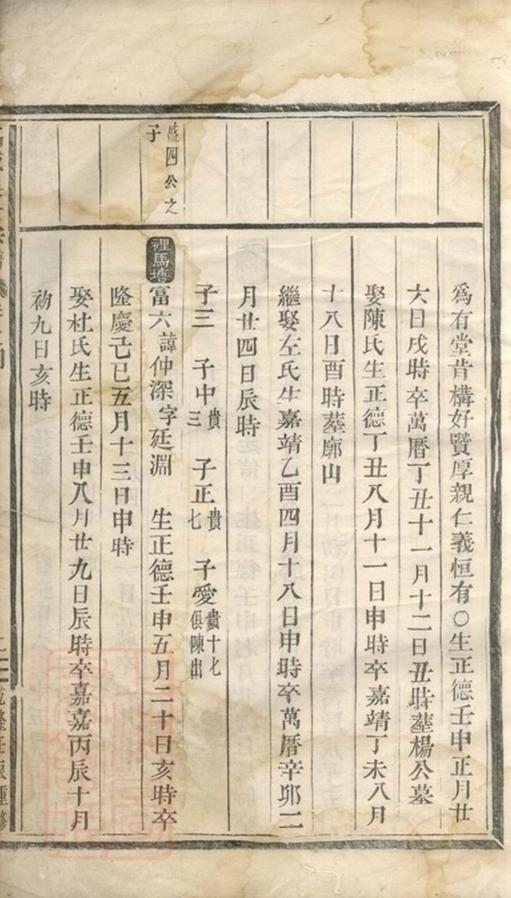 爲有堂昔構好賢厚親仁義恒有〇生正德壬申正月廿
六日戌時卒萬曆丁丑十一月十二日丑時塟楊公墓
娶陳氏生正德丁丑八月十一日申時卒嘉靖丁未八月
十八日酉時塟廓山
繼娶左氏生嘉靖乙酉四月十八日申時卒萬曆辛邜二
月廿四日辰時
子三 子中貴三 子正貴七 子愛貴十七俱陳出
盛四公之子
裡馬塘
富六諱仲深字廷淵 生正德壬申五月二十日亥時卒
隆慶己巳五月十三日申時
娶杜氏生正德壬申八月廿九日辰時卒嘉嘉丙辰十月
初九日亥時
乾隆壬辰重修